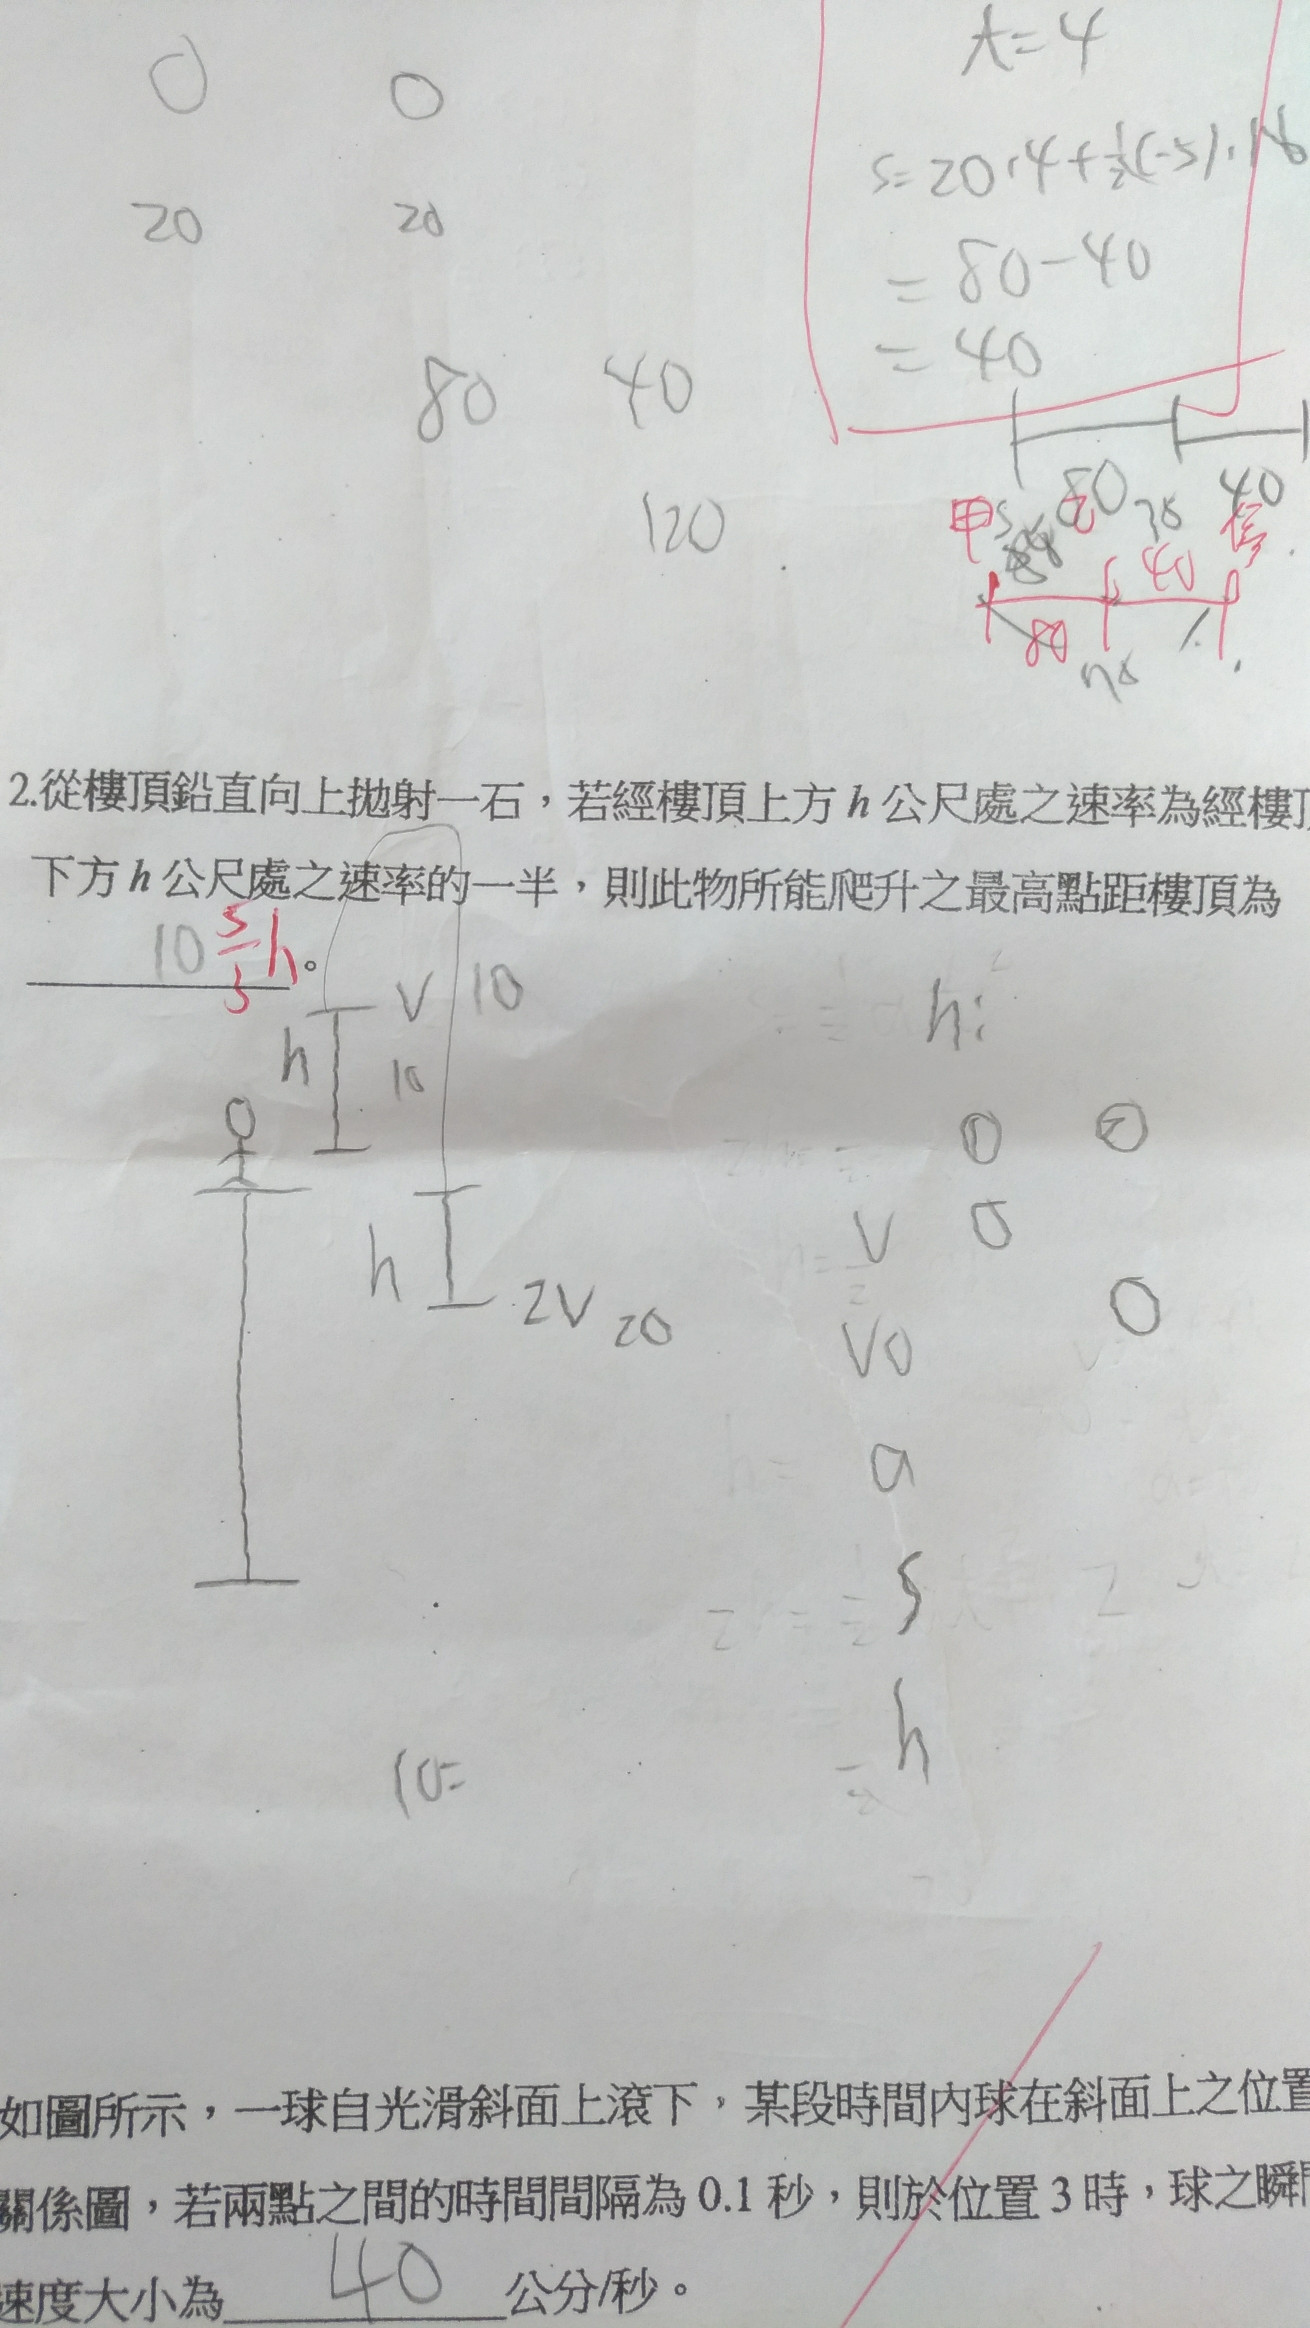 0 0
t=4
20 20
s=20·4+½(-5)·16
=80-40
80 40
=40
120
80 40
甲 乙
40
80
2.從樓頂鉛直向上拋射一石，若經樓頂上方h公尺處之速率為經樓頂
下方h公尺處之速率的一半，則此物所能爬升之最高點距樓頂為
10 5/3 h。
V 10
h 10
h:
0
V 0
h 2V 20
0
V0
a
s
h
10=
如圖所示，一球自光滑斜面上滾下，某段時間內球在斜面上之位置
關係圖，若兩點之間的時間間隔為0.1秒，則於位置3時，球之瞬間
速度大小為 40 公分/秒。